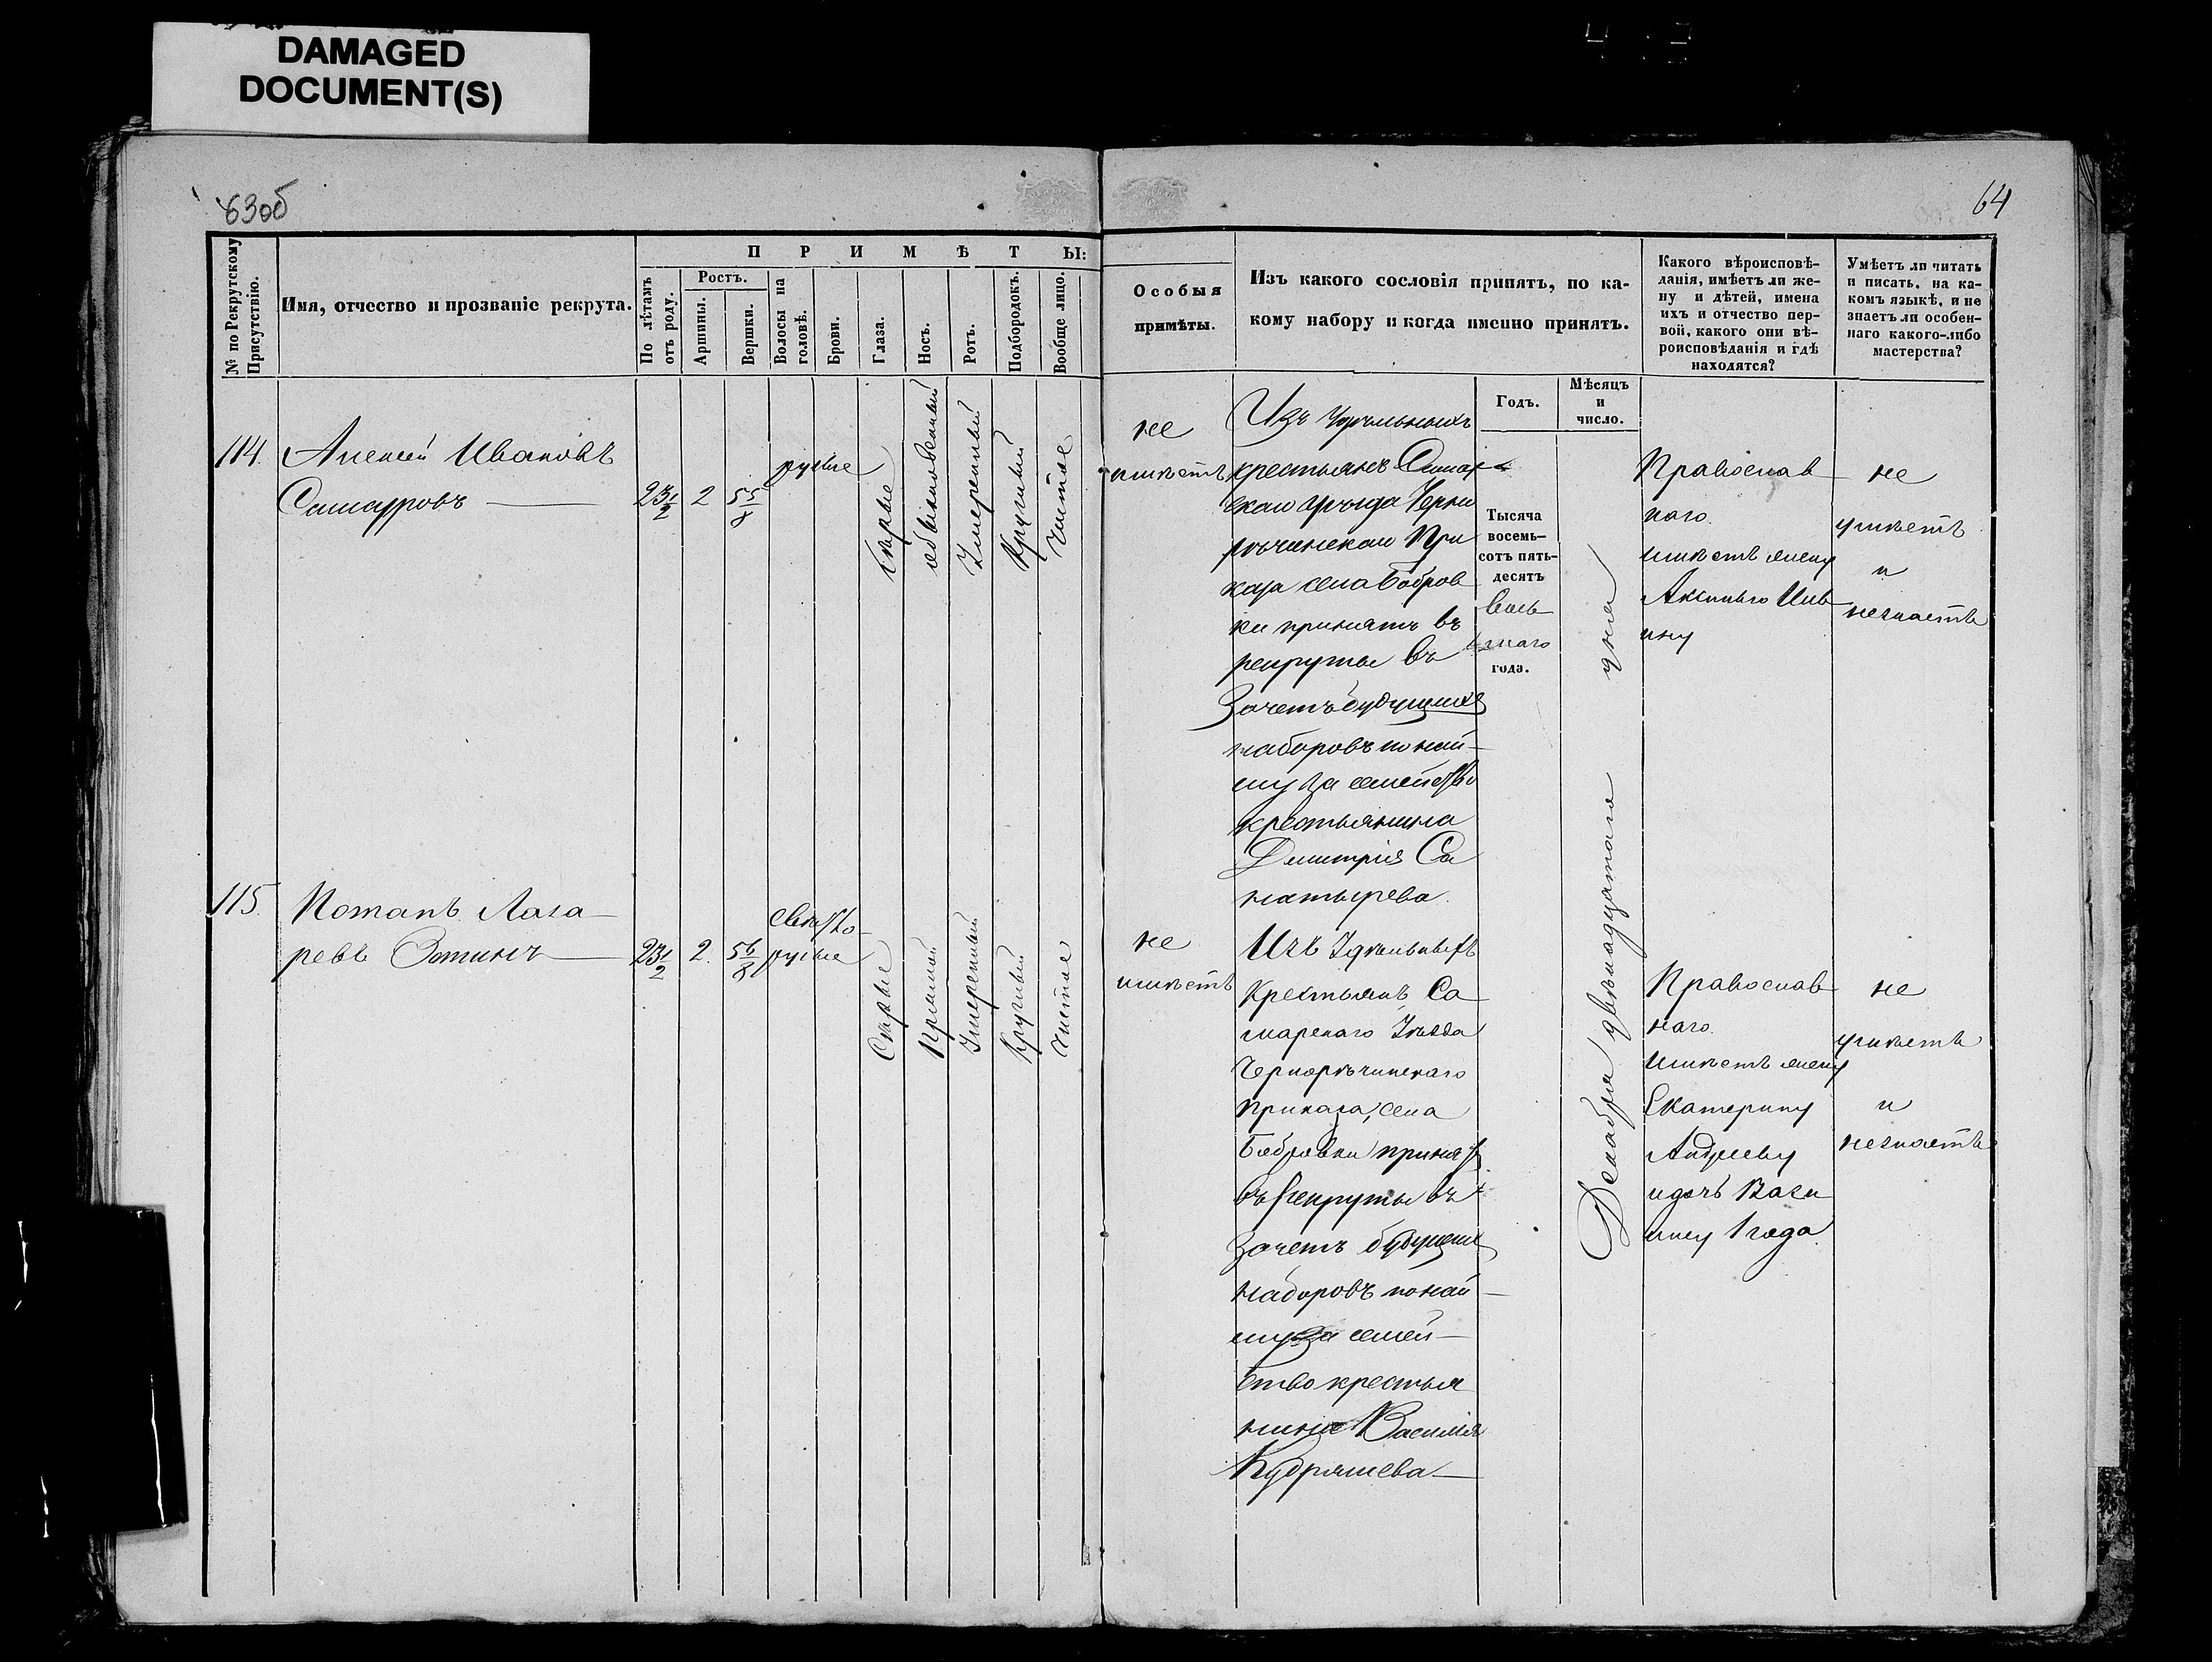 DAMAGED
DOCUMENT(S)
63об
64
№ по Рекрутскому Присутствію.
Имя, отчество и прозваніе рекрута.
ПРИМѢТЫ:
По лѣтамъ отъ роду.
Ростъ.
Аршины.
Вершки.
Волосы на головѣ.
Брови.
Глаза.
Носъ.
Ротъ.
Подбородокъ.
Вообще лицо.
Особыя
примѣты.
Изъ какого сословія принятъ, по ка-
кому набору и когда именно принятъ.
Годъ.
Мѣсяцъ
и
число.
Какого вѣроисповѣ-
данія, имѣетъ ли же-
ну и дѣтей, имена
ихъ и отчество пер-
вой, какого они вѣ-
роисповѣданія и гдѣ
находятся?
Умѣетъ ли читать
и писать, на ка-
комъ языкѣ, и не
знаетъ ли особен-
наго какого-либо
мастерства?
114.
Алексѣй Ивановъ
23 1/2
2
5 5/8
русые
сѣрые
обыкновенный
Умеренный
Круглый
Чистое
не
имѣетъ
Изъ Удѣльныхъ
крестьянъ Самар
скаго уѣзда Черно
рѣчинскаго При
каза села Бобров
ки принятъ въ
рекруты въ
Зачетъ будущихъ
наборовъ по най-
му за семейство
крестьянина
Дмитрія Са
Тысяча
восемь-
сотъ пять-
десятъ
года.
Декабря двѣнадцатаго дня
Православ
наго.
имѣетъ жену
Аксинью
не
умѣетъ
и
незнаетъ
115.
Потапъ Лаза-
ревъ Зотинъ
23 1/2
2.
5 6/8
светло-
русые
Сѣрые
Прямой
Умеренный
Круглый
Чистое
не
имѣетъ
Изъ Удѣльныхъ
Крестьянъ Са-
марскаго Уѣзда
Чернорѣчинскаго
приказа, села
Бобровки принятъ
въ рекруты въ
Зачетъ будущихъ
наборовъ по най-
му за семей-
ство крестья
нина Василія
Кудряшева
Православ
наго.
имѣетъ жену
Екатерину
Андрееву
и дочь Васи
лису 1 года
не
умѣетъ
и
незнаетъ